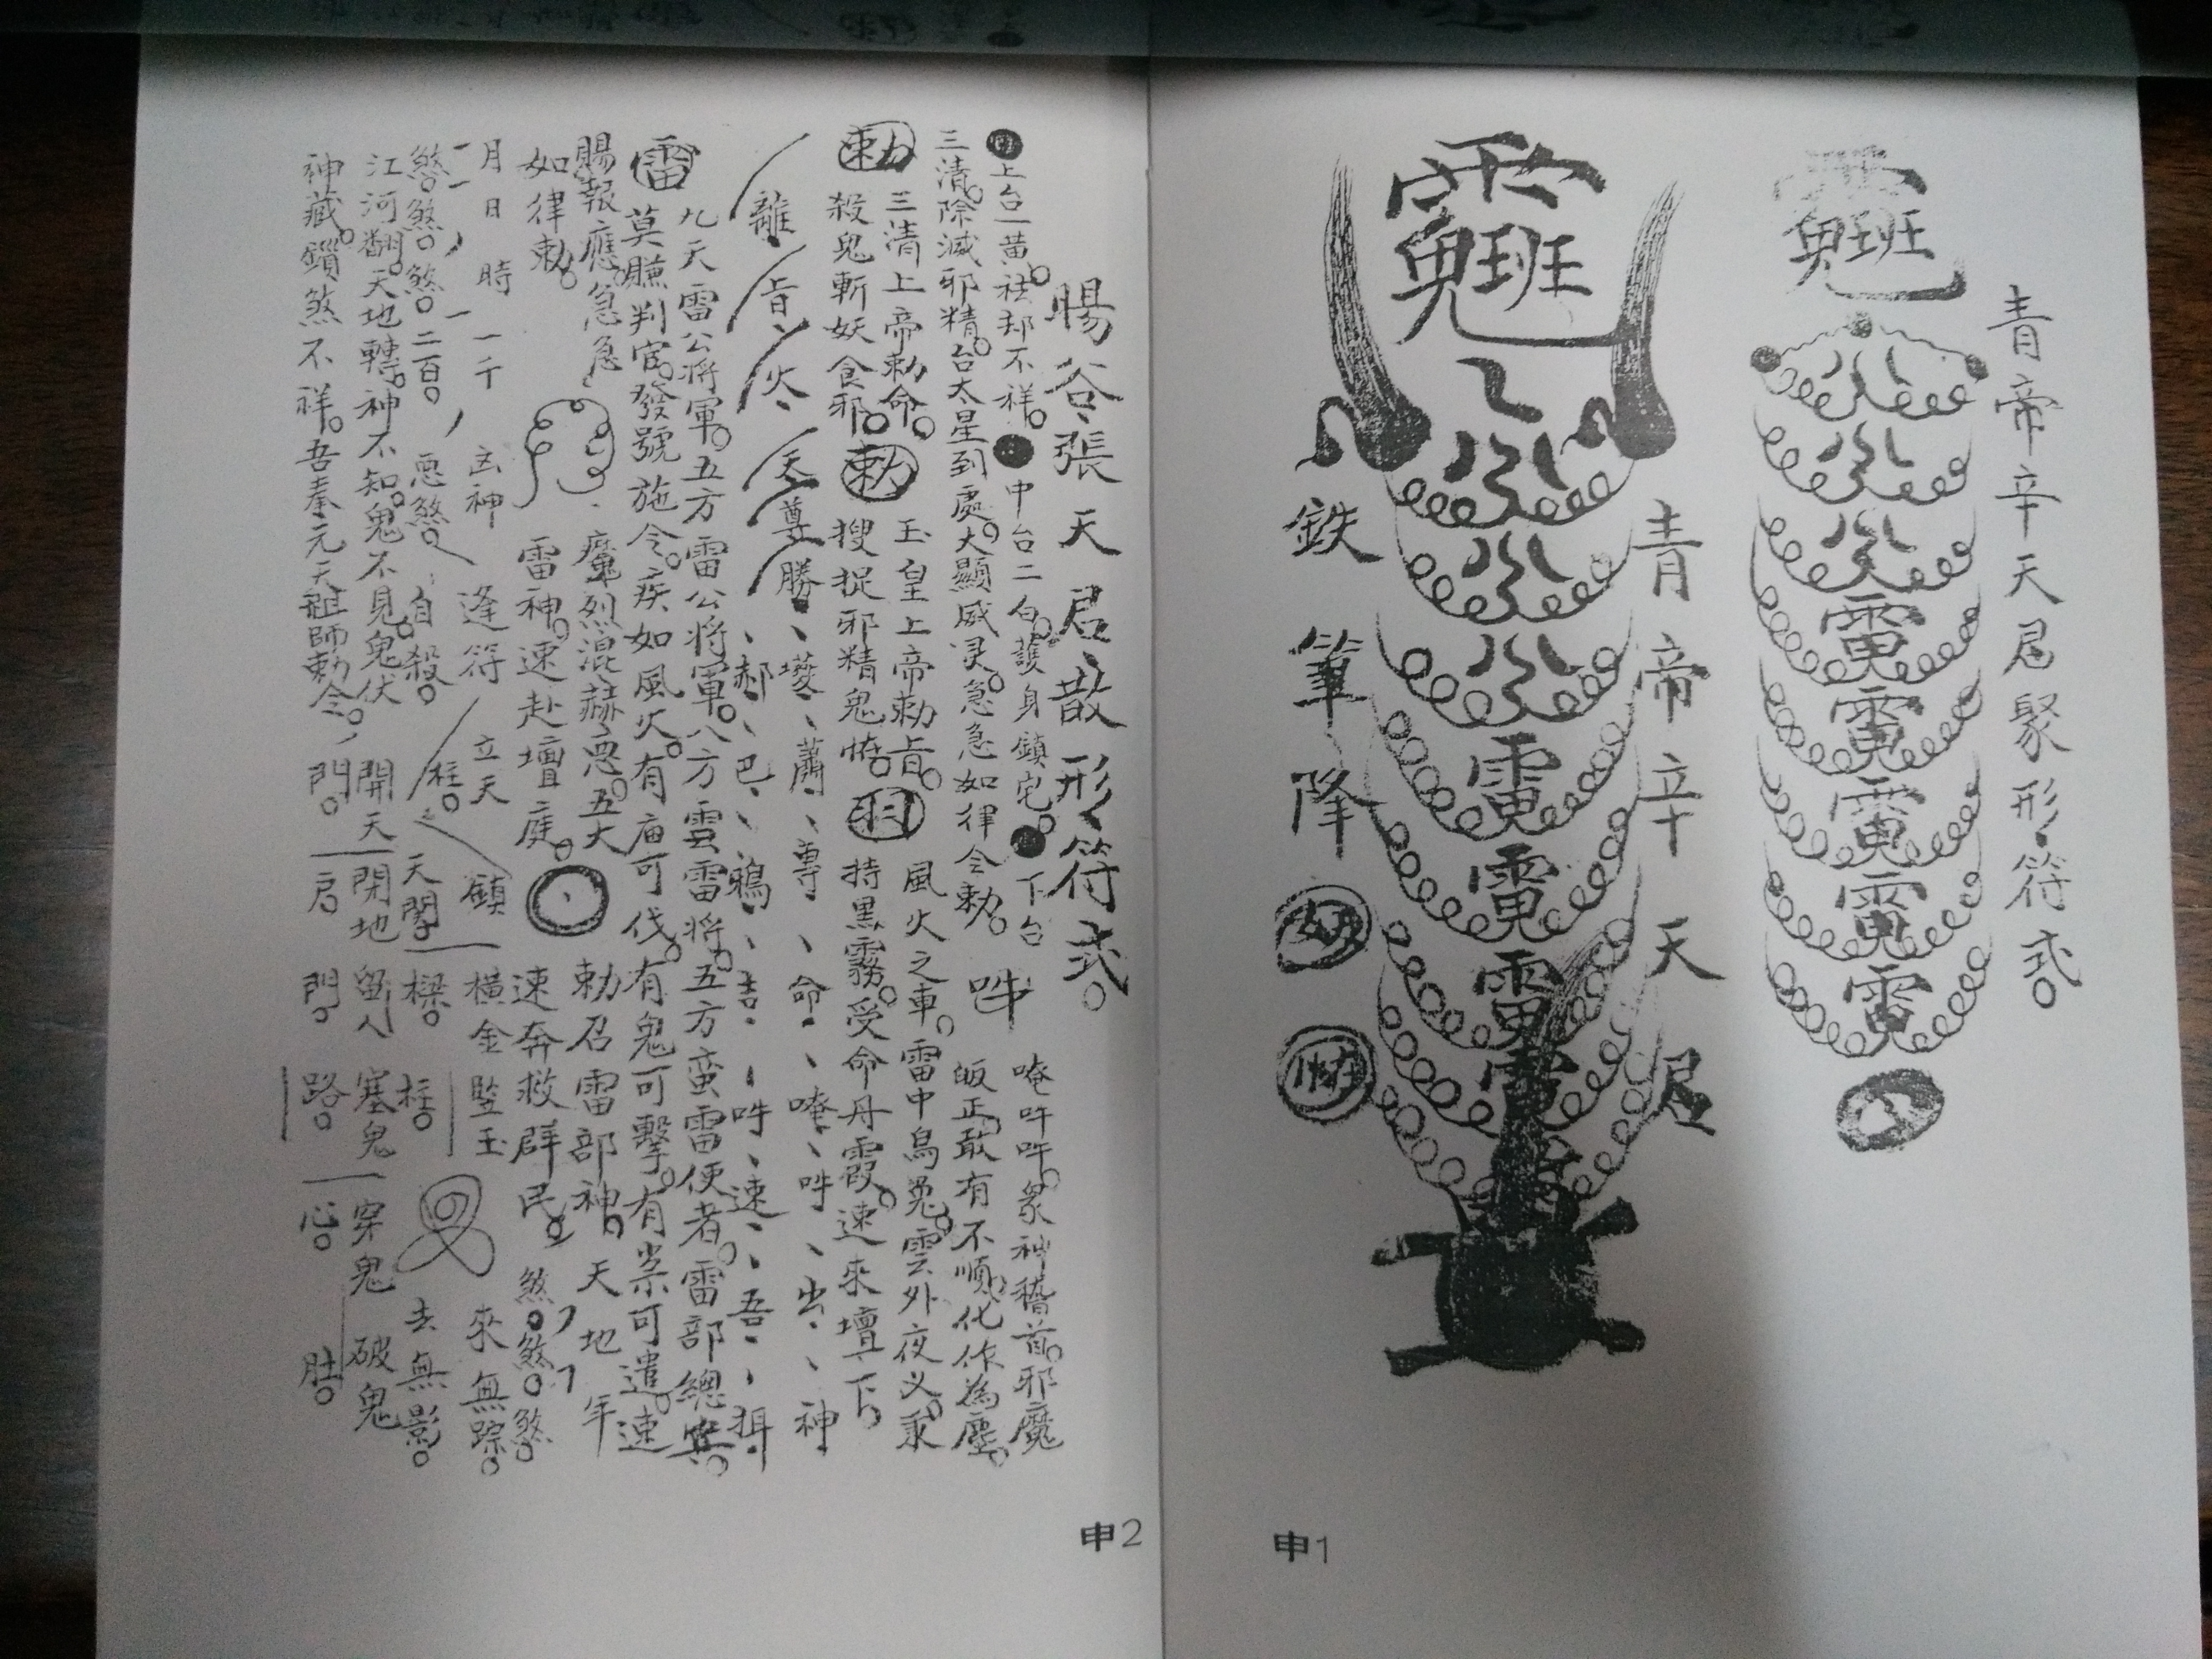 青帝辛天君聚形符式
青帝辛天君
鉄筆降
申1
暘谷張天君散形符式
上台一黃祛却不祥中台二白護身鎮宅下台
三清除滅邪精台太星到處大顯威灵急急如律令勅
吽
唵吽吽眾神稽首邪魔
皈正敢有不順化作為塵
勅
三清上帝勅命
殺鬼斬妖食邪
勅
玉皇上帝勅旨
搜捉邪精鬼怪
風火之車雷中鳥兔雲外夜义
持黑霧受命丹霞速來壇下
離旨火天尊勝
蕭尊命唵吽出神
郝巴鴉吉吽速吾
九天雷公將軍五方雷公將軍八方雲雷將五方蛮雷使者雷部總兵
雷
莫賺判官發號施令疾如風火有庙可伐有鬼可擊有祟可遣速
賜報應急急
如律勅
魔烈混赫惡五大
雷神速赴壇庭
勅召雷部神天地年
速奔救群民煞煞煞
月日時一千凶神逢符立天
煞煞煞二百惡煞自殺柱
鎮橫金竪玉來無踪
天閣樑柱去無影
江河翻天地轉神不知鬼不見鬼伏
神藏鎖煞不祥吾奉元天祖師勅令
開天閉地留人塞鬼穿鬼破鬼
門戶門路心肚
申2